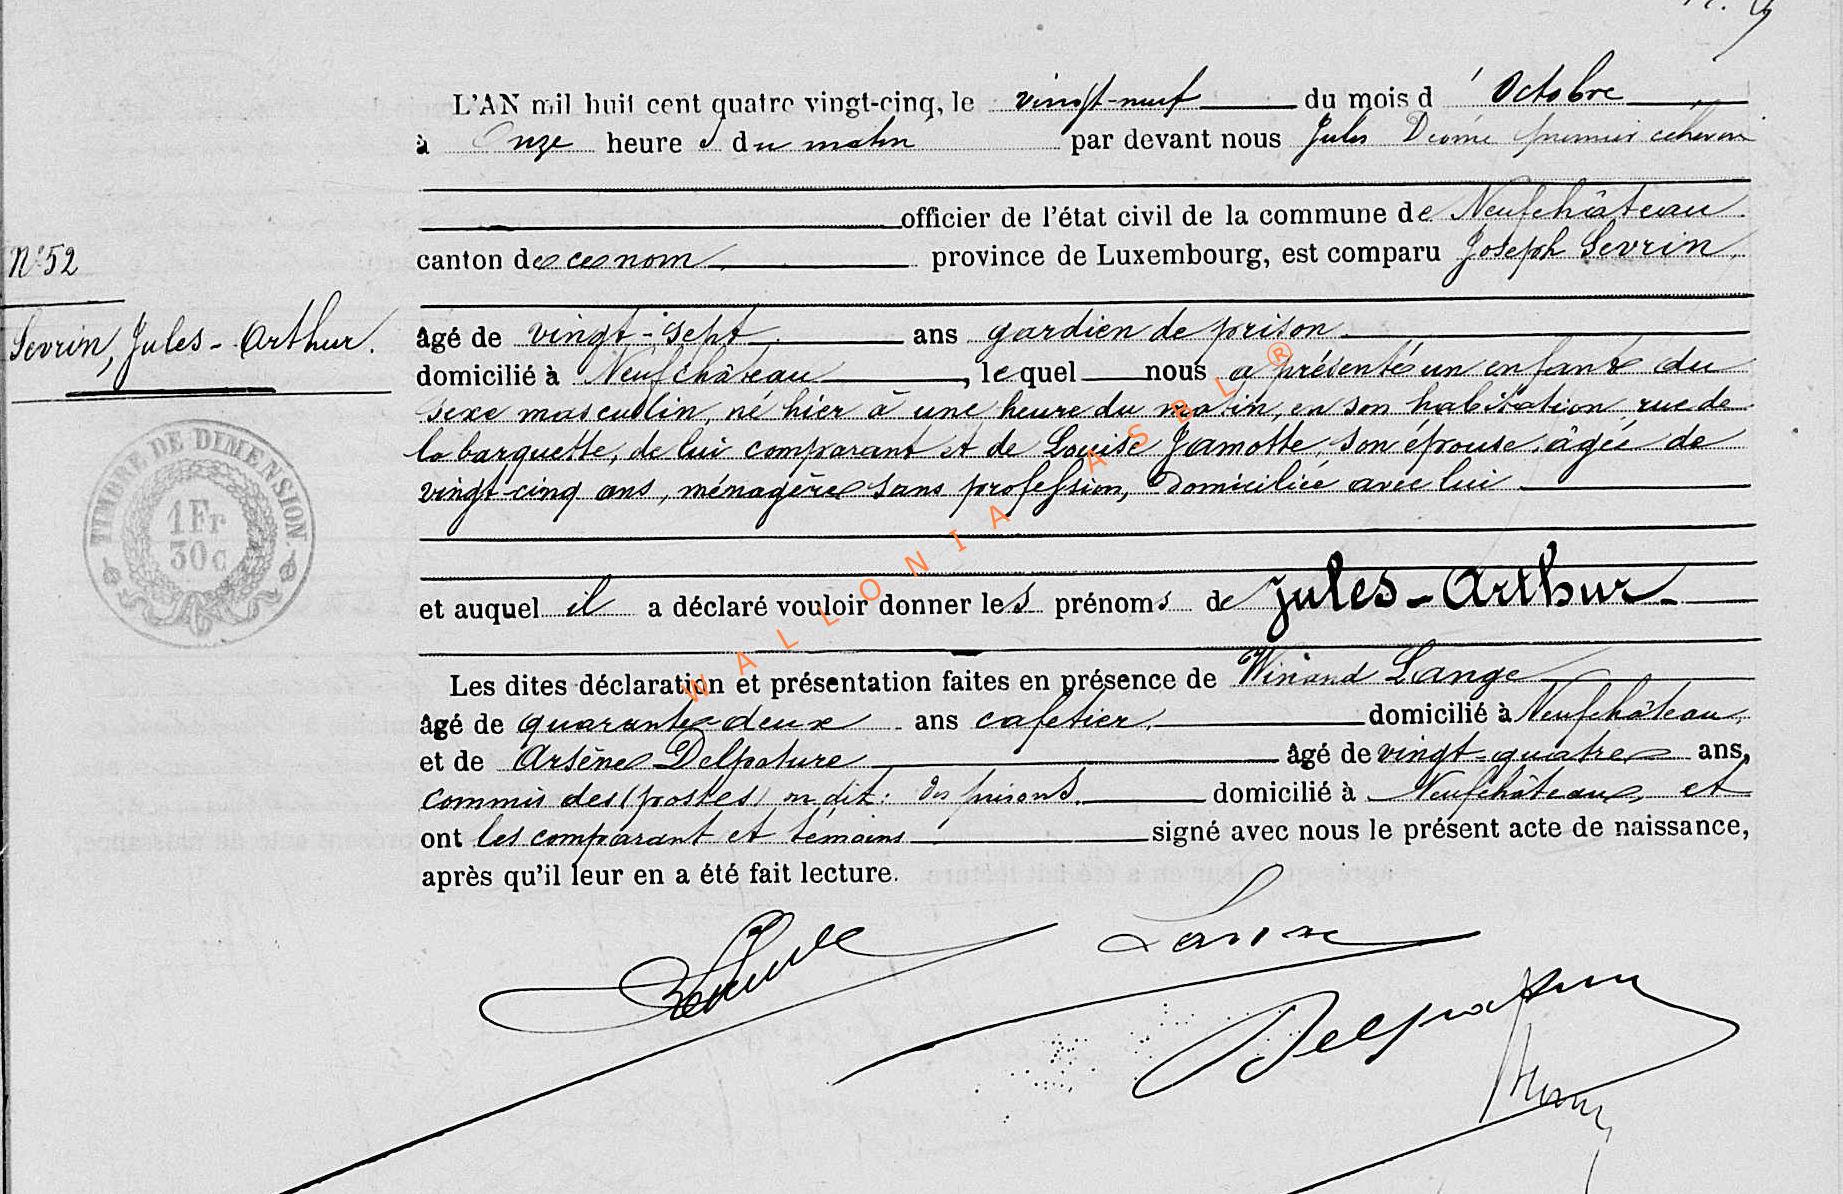 L'AN mil huit cent quatre vingt-cinq, le vingt-neuf du mois d'Octobre
à Onze heures du matin par devant nous Jules premier échevin
officier de l'état civil de la commune de Neufchâteau
N° 52
canton de ce nom, province de Luxembourg, est comparu Joseph Sevrin,
Sevrin, Jules-Arthur.
âgé de vingt-sept ans gardien de prison
domicilié à Neufchâteau, lequel nous a présenté un enfant du
sexe masculin, né hier à une heure du matin, en son habitation rue de
la barquette, de lui comparant et de Louise Jamotte, son épouse, âgée de
vingt-cinq ans, ménagère sans profession, domiciliée avec lui
TIMBRE DE DIMENSION.
1 Fr
30c
et auquel il a déclaré vouloir donner les prénoms de Jules-Arthur
Les dites déclaration et présentation faites en présence de Winand Lange
âgé de quarante-deux ans cafetier, domicilié à Neufchâteau,
et de Arsène Delpature âgé de vingt-quatre ans,
commis des (postes) on dit: des prisons, domicilié à Neufchâteau, et
ont les comparant et témoins signé avec nous le présent acte de naissance,
après qu'il leur en a été fait lecture.
Lange
Delpature
WALLONIA ASBL ®